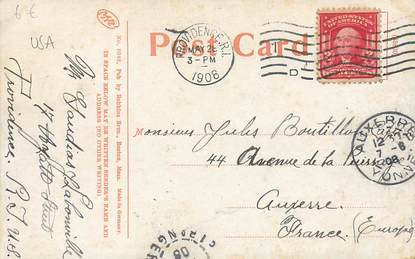 6 €
USA
No. 6042, Pub by Robbins Bros., Boston, Mass. Made in Germany.
IN SPACE BELOW MAY BE WRITTEN SENDER'S NAME AND
ADDRESS (NO OTHER WRITING).
Mr Claudias Labonville
17 Street
Providence, R.I. U.S.
Post Card
PROVIDENCE, R.I.
MAY 26
3-PM
1908
UNITED STATES OF AMERICA
Monsieur Jules Boutillon
44 Avenue de la Tournelle
Auxerre
France (Europe)
AUXERRE
YONNE
08
ETRANGER
08